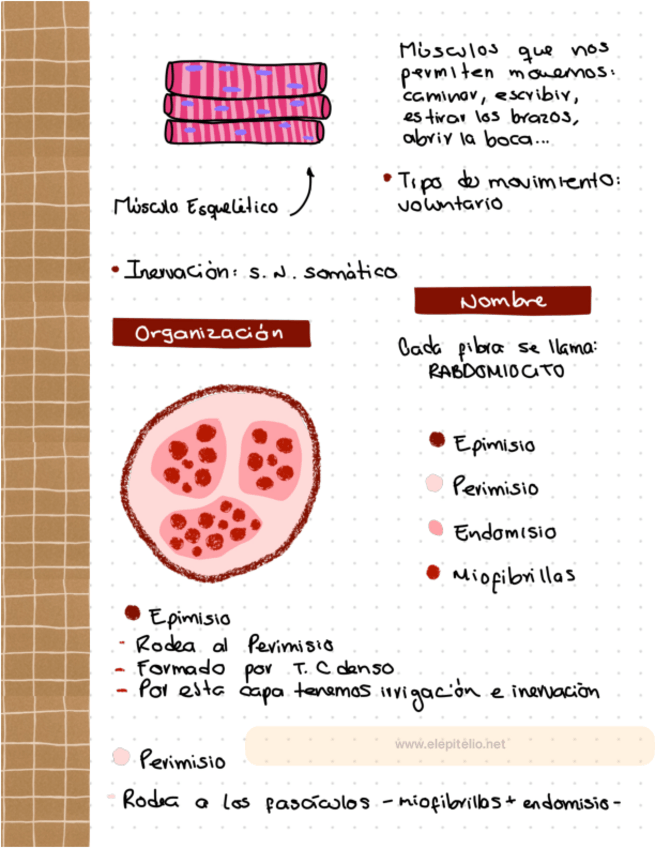 Músculos que nos
permiten movernos:
caminar, escribir,
estirar los brazos,
abrir la boca...
Músculo Esquelético
• Tipo de movimiento:
voluntario
• Inervación: S. N. somático
Nombre
Organización
Cada fibra se llama:
RABDOMIOCITO
Epimisio
Perimisio
Endomisio
Miofibrillas
Epimisio
- Rodea al Perimisio
- Formado por T. C denso
- Por esta capa tenemos irrigación e inervación
www.elepitelio.net
Perimisio
- Rodea a los fascículos - miofibrillas + endomisio -